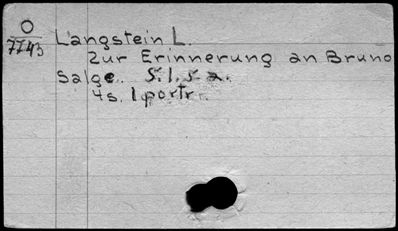 O
7743
Langstein L.
Zur Erinnerung an Bruno
Salge. S.l.s.a.
4s. 1 portr.